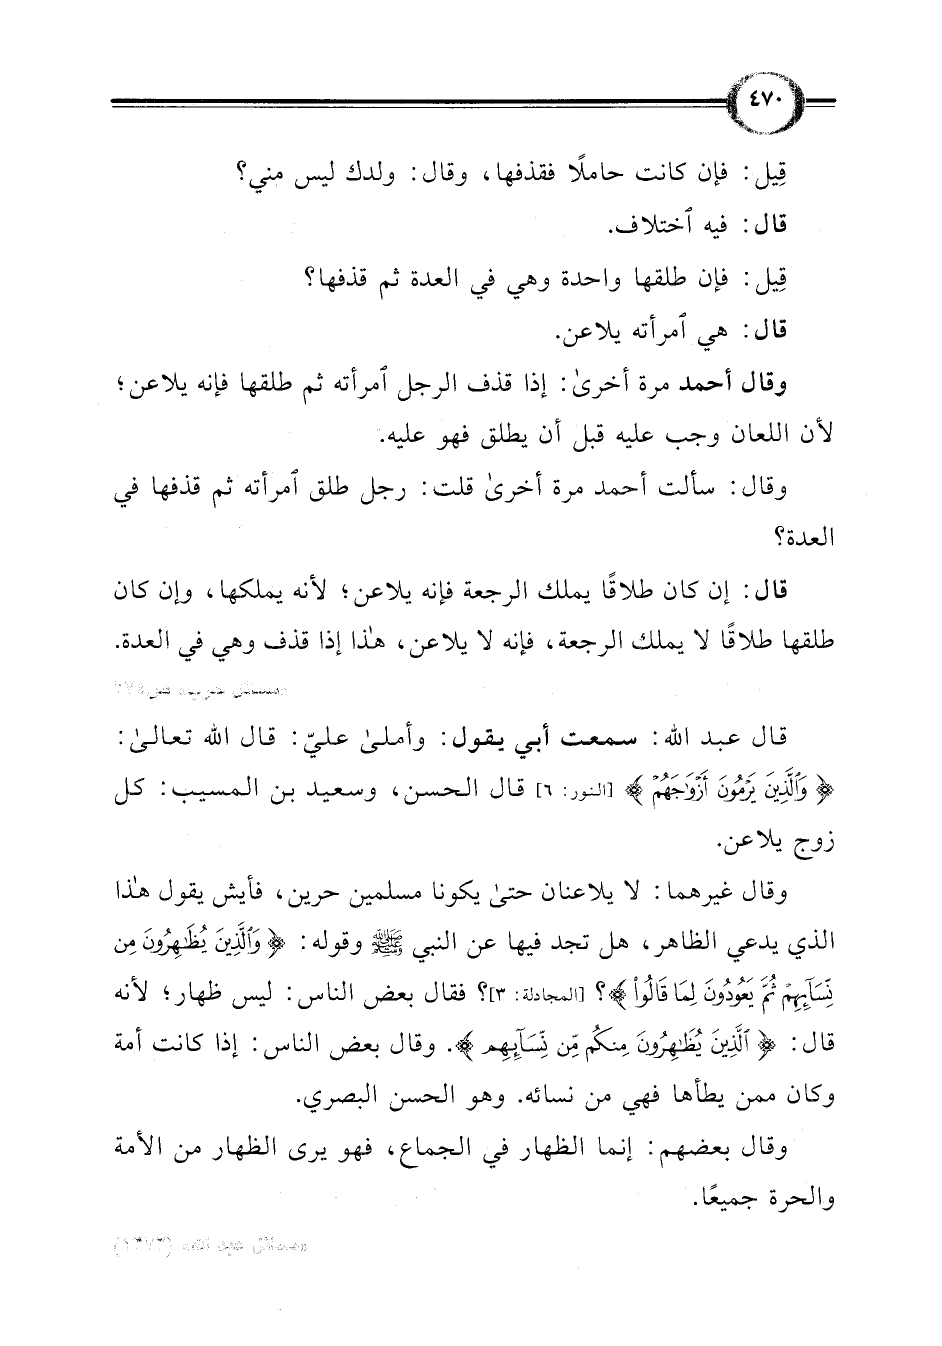 ٤٧٠
قِيل: فإن كانت حاملًا فقذفها، وقال: ولدك ليس مني؟
قال: فيه ٱختلاف.
قِيل: فإن طلقها واحدة وهي في العدة ثم قذفها؟
قال: هي ٱمرأته يلاعن.
وقال أحمد مرة أخرىٰ: إذا قذف الرجل ٱمرأته ثم طلقها فإنه يلاعن؛
لأن اللعان وجب عليه قبل أن يطلق فهو عليه.
وقال: سألت أحمد مرة أخرىٰ قلت: رجل طلق ٱمرأته ثم قذفها في
العدة؟
قال: إن كان طلاقًا يملك الرجعة فإنه يلاعن؛ لأنه يملكها، وإن كان
طلقها طلاقًا لا يملك الرجعة، فإنه لا يلاعن، هٰذا إذا قذف وهي في العدة.
«مسائل حرب» ص
قال عبد الله: سمعت أبي يقول: وأملىٰ عليّ: قال الله تعالىٰ:
﴿وَٱلَّذِينَ يَرْمُونَ أَزْوَٰجَهُمْ﴾ [النور: ٦] قال الحسن، وسعيد بن المسيب: كل
زوج يلاعن.
وقال غيرهما: لا يلاعنان حتىٰ يكونا مسلمين حرين، فأيش يقول هٰذا
الذي يدعي الظاهر، هل تجد فيها عن النبي ﷺ وقوله: ﴿وَٱلَّذِينَ يُظَٰهِرُونَ مِن
نِّسَآئِهِمْ ثُمَّ يَعُودُونَ لِمَا قَالُوا۟﴾؟ [المجادلة: ٣]؟ فقال بعض الناس: ليس ظهار؛ لأنه
قال: ﴿ٱلَّذِينَ يُظَٰهِرُونَ مِنكُم مِّن نِّسَآئِهِم﴾. وقال بعض الناس: إذا كانت أمة
وكان ممن يطأها فهي من نسائه. وهو الحسن البصري.
وقال بعضهم: إنما الظهار في الجماع، فهو يرى الظهار من الأمة
والحرة جميعًا.
«مسائل عبد الله»